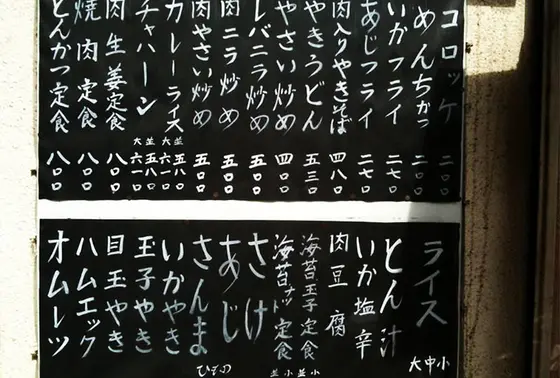 コロッケ 二〇〇
めんちかつ 二〇〇
いかフライ 二七〇
あじフライ 二七〇
肉入りやきそば 四八〇
やきうどん 五三〇
やさい炒め 四〇〇
レバニラ炒め 五〇〇
肉ニラ炒め 五〇〇
肉やさい炒め 五〇〇
カレーライス 並 五八〇 大 六一〇
チャハーン 並 五八〇 大 六一〇
肉生姜定食 八〇〇
焼肉定食 八〇〇
とんかつ定食 八〇〇
ライス 小 中 大
とん汁
いか塩辛
肉豆腐
海苔玉子定食 小 並
海苔ナット定食 小 並
さけ
あじ
さんま ひもの
いかやき
玉子やき
目玉やき
ハムエック
オムレツ